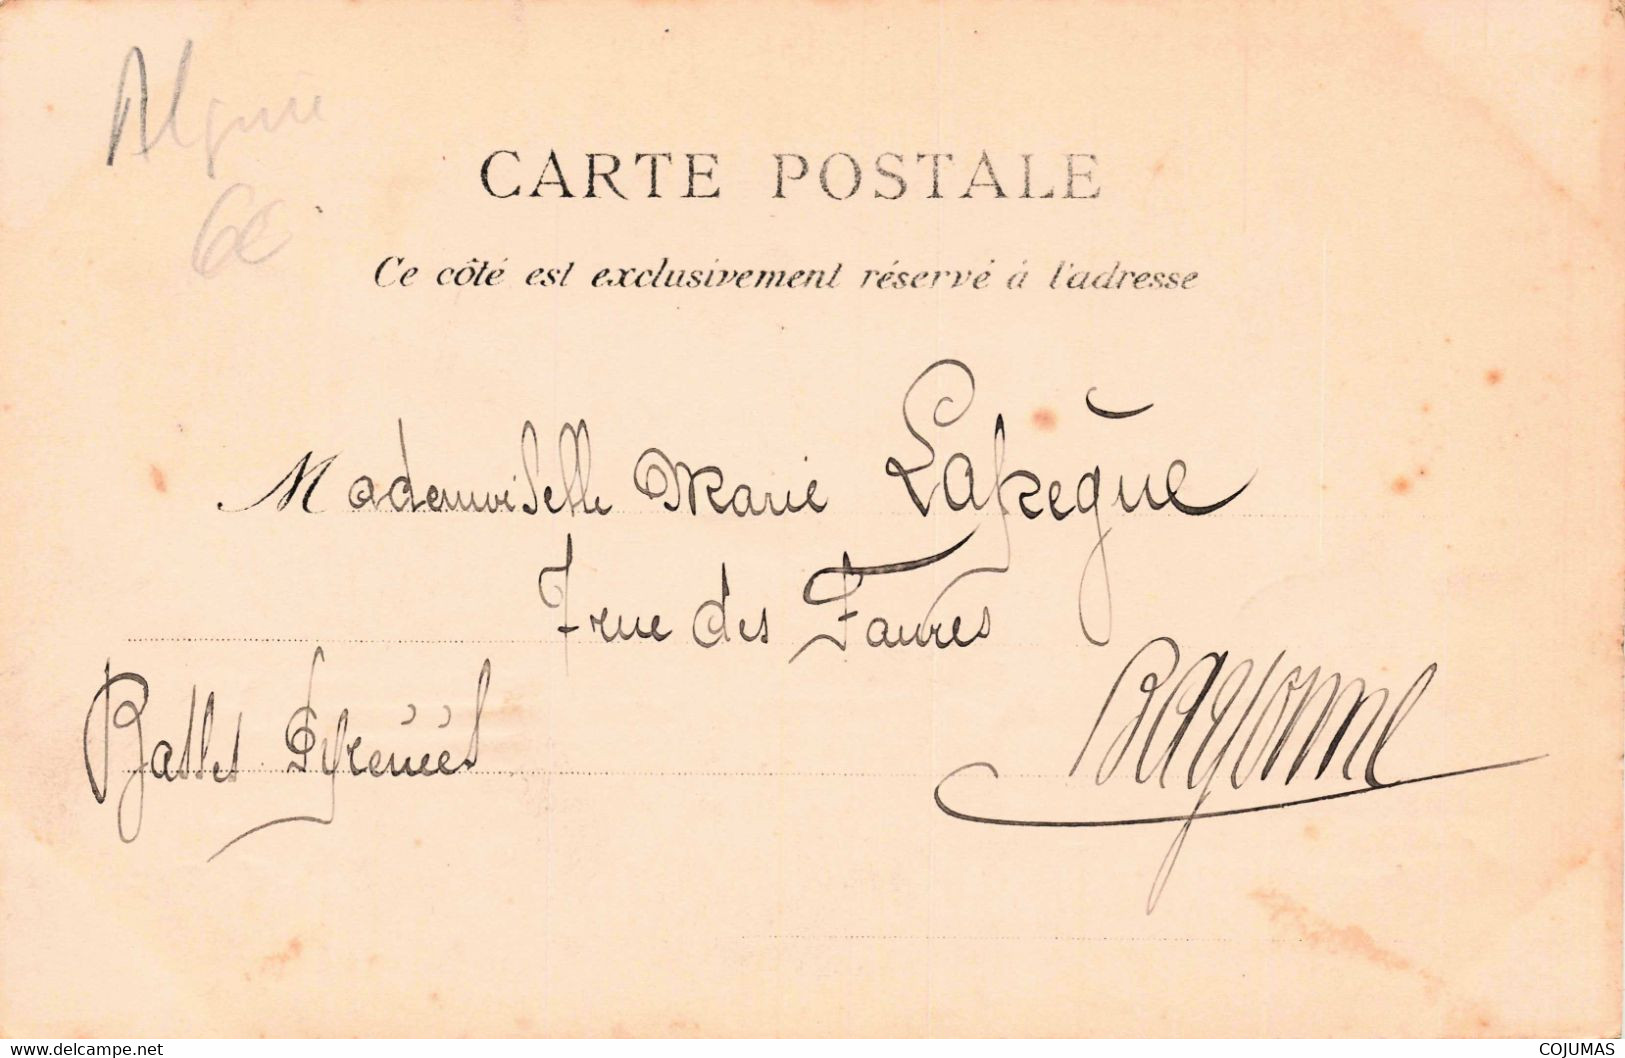 Algérie
6€
CARTE POSTALE
Ce côté est exclusivement réservé à l'adresse
Mademoiselle Marie Lafrègue
7 rue des Faures
Basses Pyrénées Bayonne
www.delcampe.net
COJUMAS